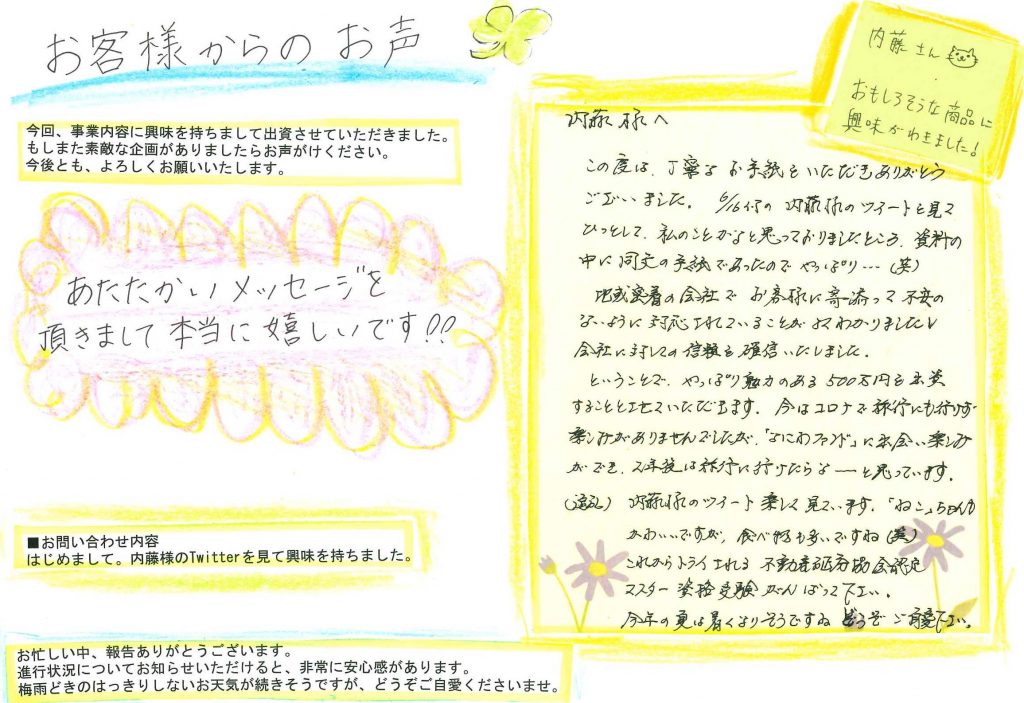 お客様からの お声
今回、事業内容に興味を持ちまして出資させていただきました。
もしまた素敵な企画がありましたらお声がけください。
今後とも、よろしくお願いいたします。
あたたかいメッセージを
頂きまして本当に嬉しいです!!
■お問い合わせ内容
はじめまして。内藤様のTwitterを見て興味を持ちました。
お忙しい中、報告ありがとうございます。
進行状況についてお知らせいただけると、非常に安心感があります。
梅雨どきのはっきりしないお天気が続きそうですが、どうぞご自愛くださいませ。
内藤さん
おもしろそうな商品に
興味がわきました!
内藤様へ
この度は、丁寧なお手紙をいただきありがとう
ございました。6/16付の内藤様のツイートを見て
ひょっとして、私のことかなと思っておりましたところ、資料の
中に同文の手紙であったのでやっぱり…(笑)
地域密着の会社でお客様に寄添って不安の
ないように対応されていることがよくわかりましたし
会社に対しての信頼を確信いたしました。
ということで、やっぱり魅力のある500万円を出資
することとさせていただきます。今はコロナで旅行にも行けず
楽しみがありませんでしたが、「なにわファンド」に出会い楽しみ
ができ、2年後は旅行に行けたらなーと思っています。
(追記) 内藤様のツイート楽しく見ています。「ねこ」ちゃんも
かわいいですが、食べ物も多いですね(笑)
これからトライされる 不動産証券協会認定
マスター資格受験がんばって下さい。
今年の夏は暑くなりそうですね どうぞご自愛下さい。